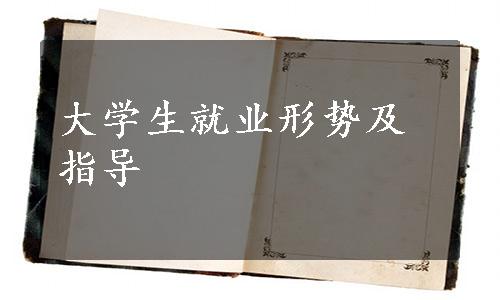 大学生就业形势及
指导